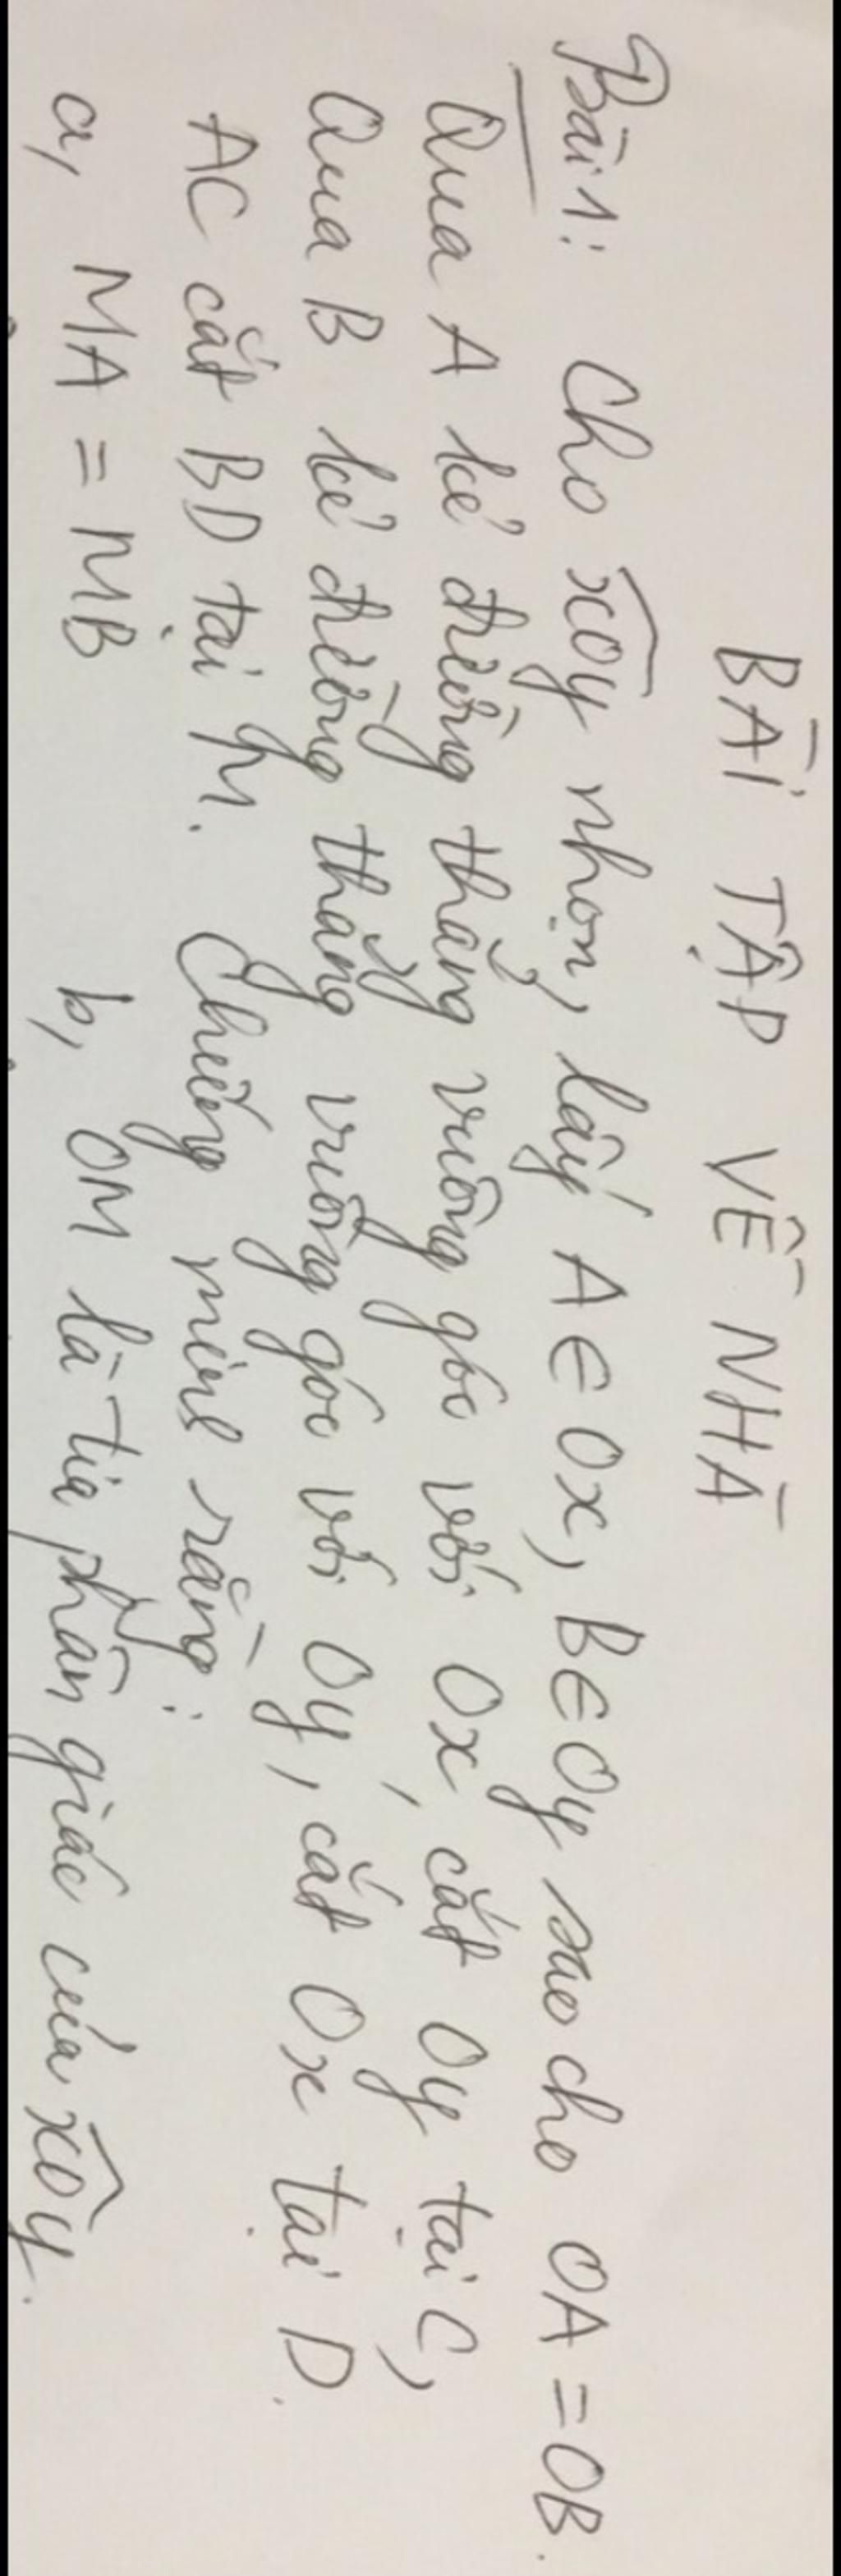 BÀI TẬP VỀ NHÀ
Bài 1: Cho xOy nhọn, lấy A ∈ Ox, B ∈ Oy sao cho OA = OB.
Qua A kẻ đường thẳng vuông góc với Ox, cắt Oy tại C,
Qua B kẻ đường thẳng vuông góc với Oy, cắt Ox tại D.
AC cắt BD tại M. Chứng minh rằng:
a, MA = MB b, OM là tia phân giác của xOy.